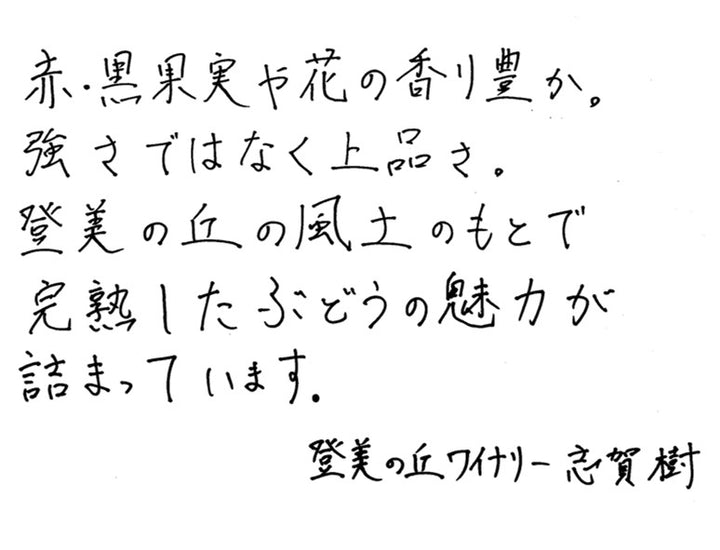 赤・黒果実や花の香り豊か。
強さではなく上品さ。
登美の丘の風土のもとで
完熟したぶどうの魅力が
詰まっています。
登美の丘ワイナリー 志賀樹